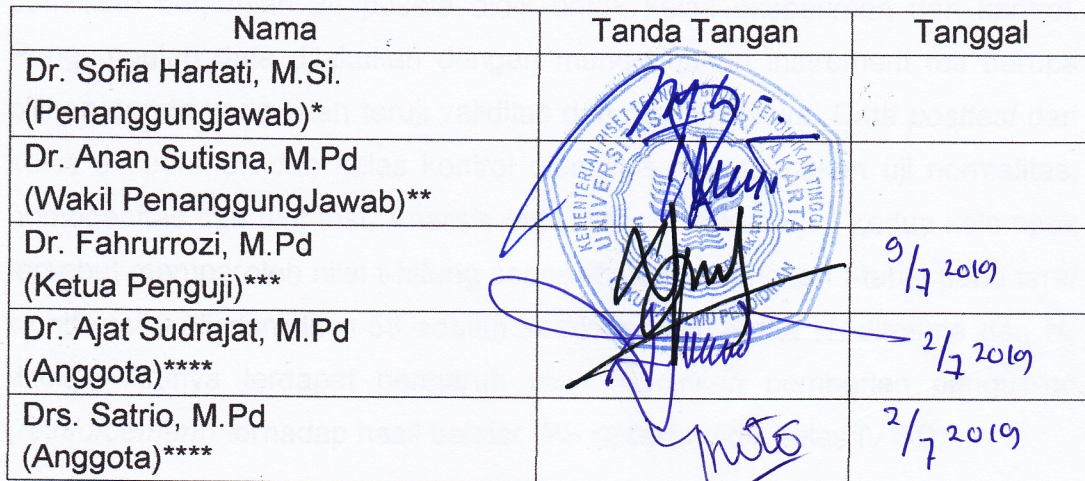 Nama Tanda Tangan Tanggal
Dr. Sofia Hartati, M.Si.
(Penanggungjawab)*
Dr. Anan Sutisna, M.Pd
(Wakil PenanggungJawab)**
Dr. Fahrurrozi, M.Pd
(Ketua Penguji)*** 9/7 2019
Dr. Ajat Sudrajat, M.Pd
(Anggota)**** 2/7 2019
Drs. Satrio, M.Pd
(Anggota)**** 2/7 2019
KEMENTERIAN RISET TEKNOLOGI DAN PENDIDIKAN TINGGI
UNIVERSITAS NEGERI JAKARTA
ILMU PENDIDIKAN